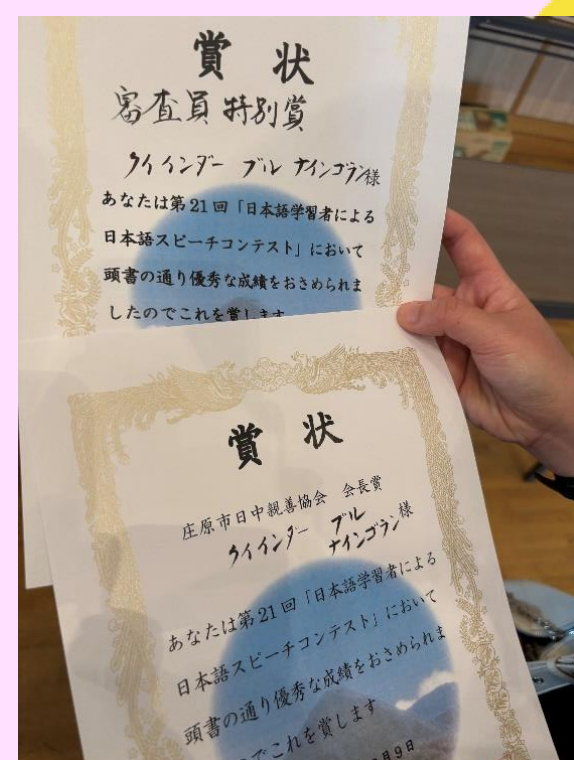 賞 状
審査員特別賞
クイインダー ブル ナインゴラン様
あなたは第21回「日本語学習者による
日本語スピーチコンテスト」において
頭書の通り優秀な成績をおさめられま
したのでこれを賞します
賞 状
庄原市日中親善協会 会長賞
クイインダー ブル
ナインゴラン様
あなたは第21回「日本語学習者による
日本語スピーチコンテスト」において
頭書の通り優秀な成績をおさめられま
のでこれを賞します
月9日